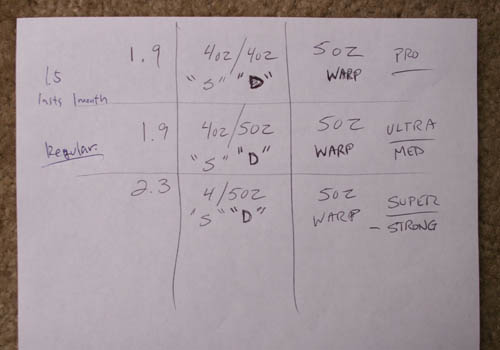 1.9 4oz/4oz 5oz PRO
L5 "S" "D" WARP
lasts 1month
1.9 4oz/5oz 5oz ULTRA
Regular "S" "D" WARP MED
2.3 4/5oz 5oz SUPER
"S" "D" WARP - STRONG